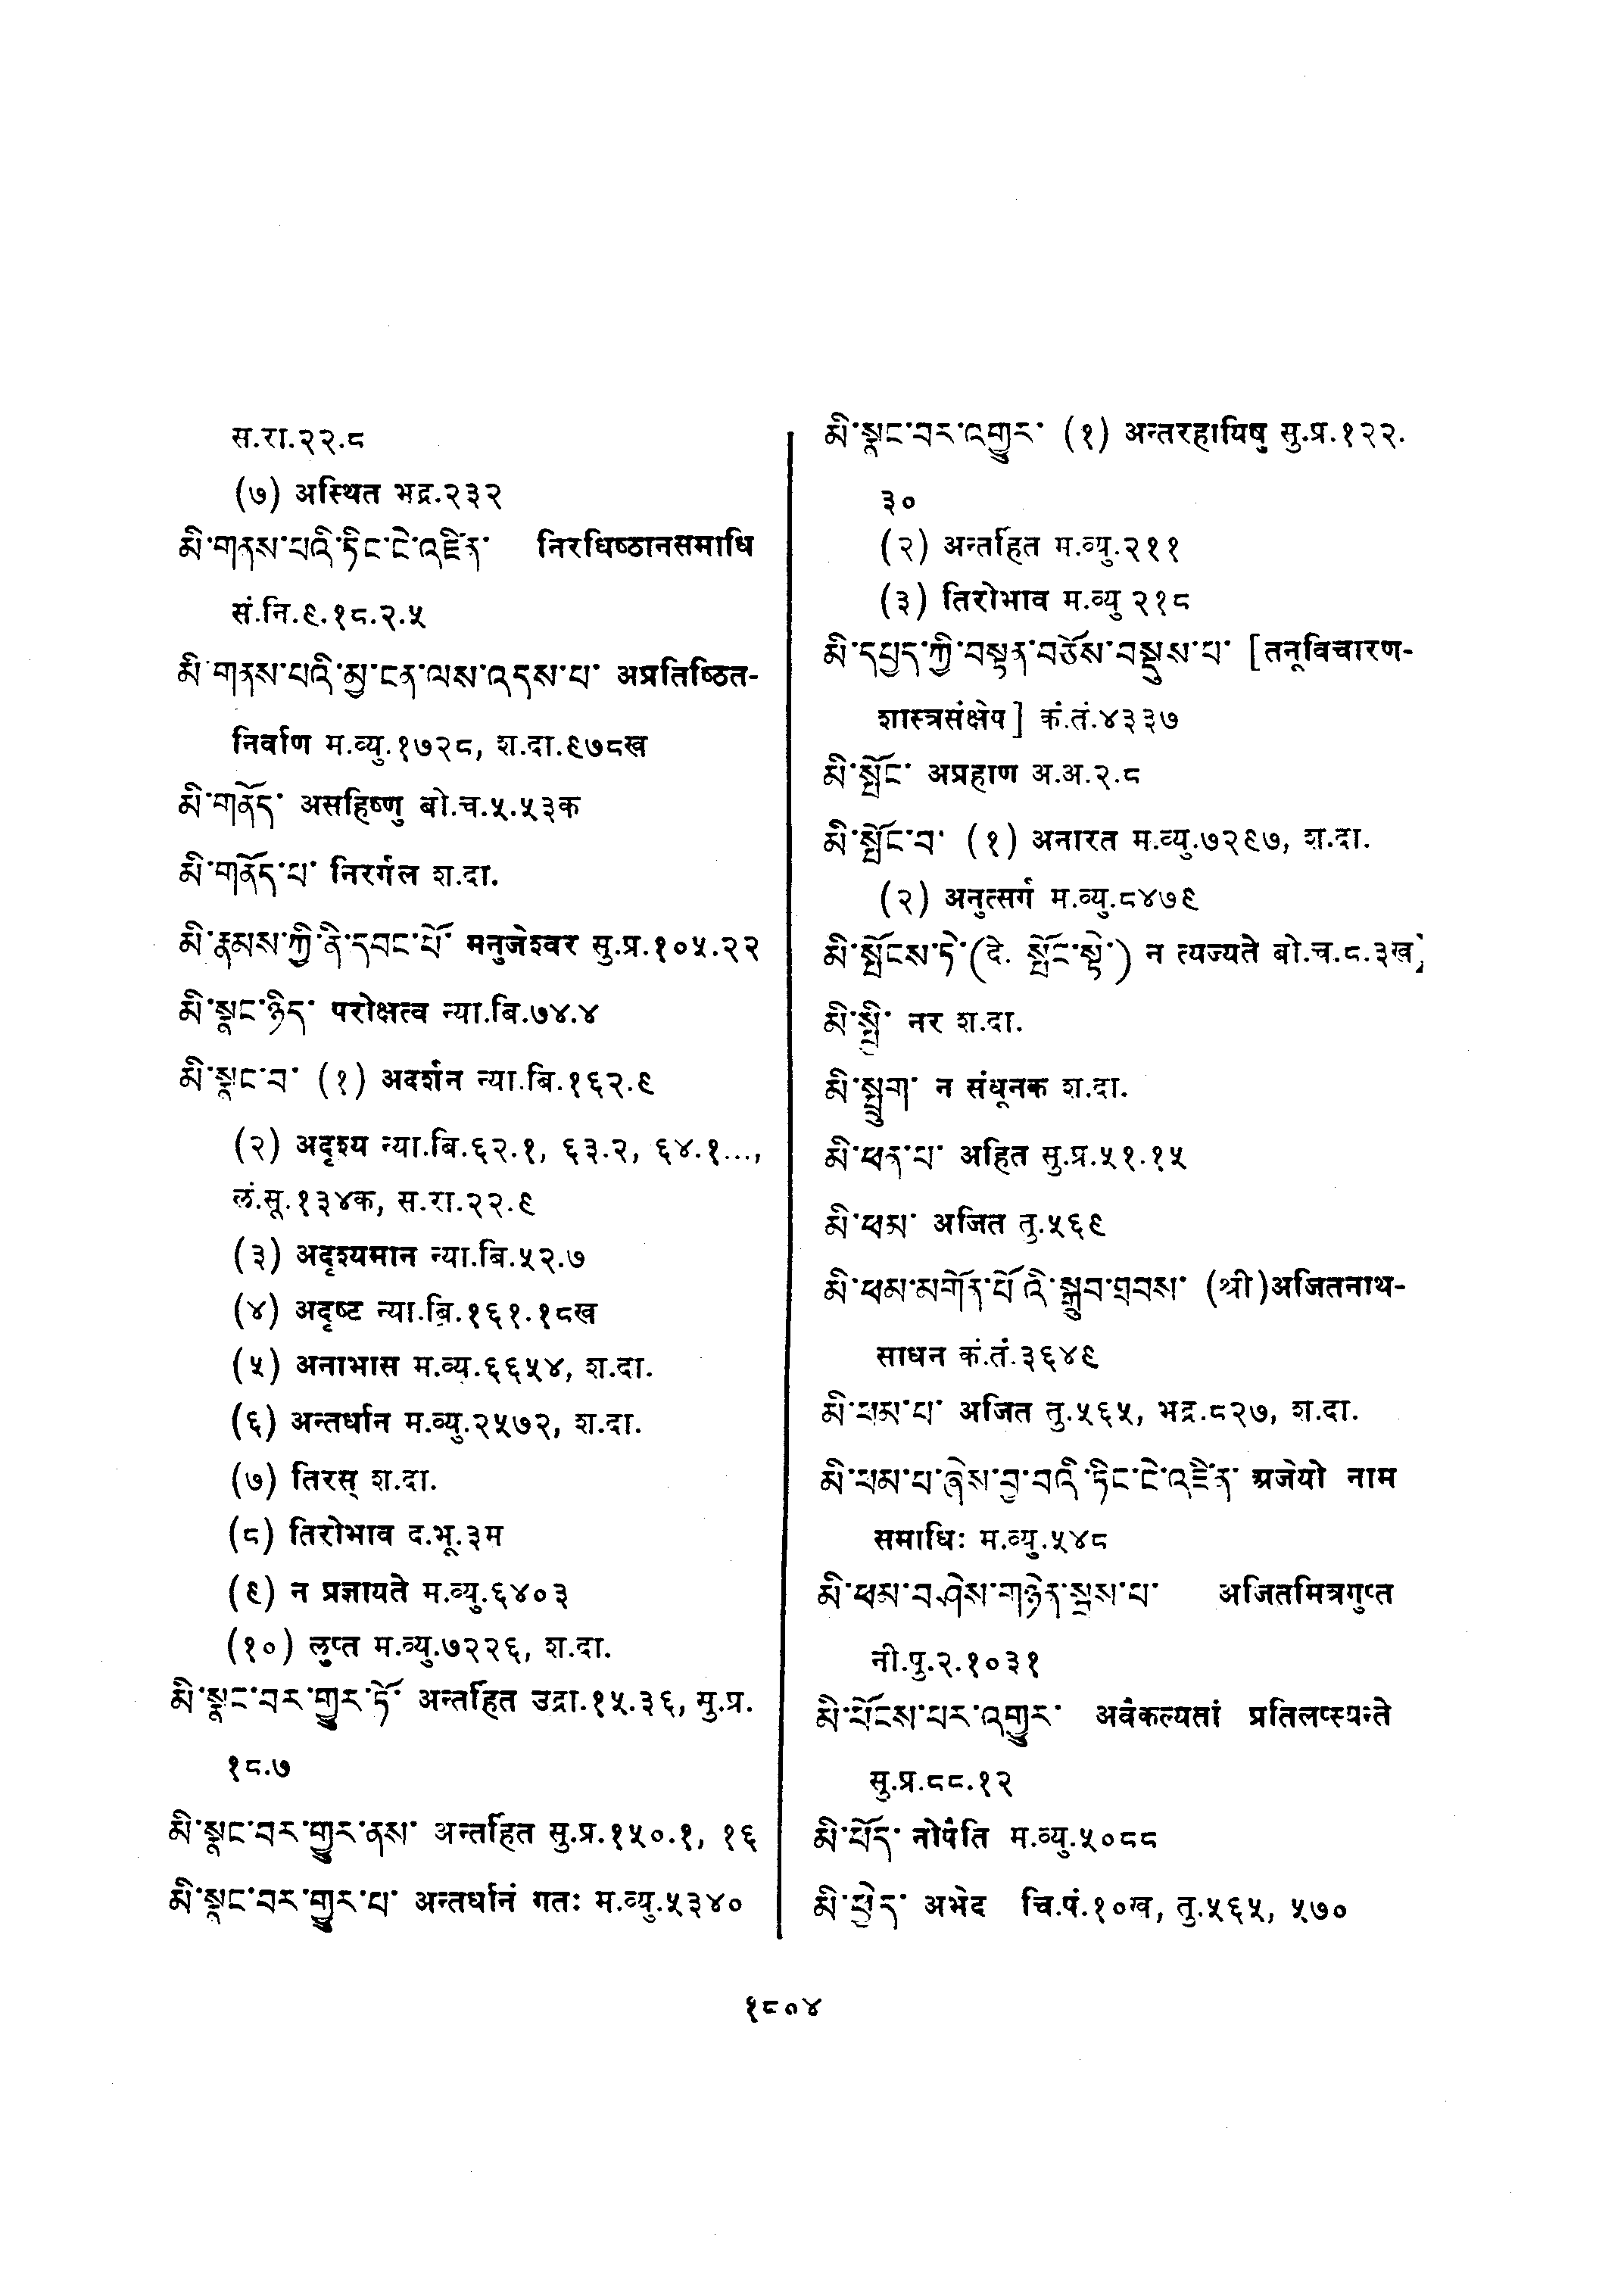 स.रा.२२.८
(७) अस्थित भद्र.२३२
མི་གནས་པའི་ཏིང་ངེ་འཛིན་ निरधिष्ठानसमाधि
सं.नि.९.१८.२.५
མི་གནས་པའི་མྱ་ངན་ལས་འདས་པ་ अप्रतिष्ठित-
निर्वाण म.व्यु.१७२८, श.दा.९७८ख
མི་གནོད་ असहिष्णु बो.च.५.५३क
མི་གནོད་པ་ निरर्गल श.दा.
མི་རྣམས་ཀྱི་ནི་དབང་པོ་ मनुजेश्वर सु.प्र.१०५.२२
མི་སྣང་ཉིད་ परोक्षत्व न्या.बि.७४.४
མི་སྣང་བ་ (१) अदर्शन न्या.बि.१६२.९
(२) अदृश्य न्या.बि.६२.१, ६३.२, ६४.१...,
लं.सू.१३४क, स.रा.२२.९
(३) अदृश्यमान न्या.बि.५२.७
(४) अदृष्ट न्या.बि.१६१.१८ख
(५) अनाभास म.व्य.६६५४, श.दा.
(६) अन्तर्धान म.व्यु.२५७२, श.दा.
(७) तिरस् श.दा.
(८) तिरोभाव द.भू.३म
(९) न प्रज्ञायते म.व्यु.६४०३
(१०) लुप्त म.व्यु.७२२६, श.दा.
མི་སྣང་བར་གྱུར་ཏོ་ अन्तर्हित उद्रा.१५.३६, सु.प्र.
१८.७
མི་སྣང་བར་གྱུར་ནས་ अन्तर्हित सु.प्र.१५०.१, १६
མི་སྣང་བར་གྱུར་པ་ अन्तर्धानं गतः म.व्यु.५३४०
མི་སྣང་བར་འགྱུར་ (१) अन्तरहायिषु सु.प्र.१२२.
३०
(२) अन्तर्हित म.व्यु.२११
(३) तिरोभाव म.व्यु २१८
མི་དཔྱད་ཀྱི་བསྟན་བཅོས་བསྡུས་པ་ [तनूविचारण-
शास्त्रसंक्षेप] कं.तं.४३३७
མི་སྤོང་ अप्रहाण अ.अ.२.८
མི་སྤོང་བ་ (१) अनारत म.व्यु.७२९७, श.दा.
(२) अनुत्सर्ग म.व्यु.८४७९
མི་སྤོངས་ཏེ་(दे. སྤོང་སྟེ་) न त्यज्यते बो.च.८.३ख
མི་སྤྱི་ नर श.दा.
མི་སྤྲུག་ न संधूनक श.दा.
མི་ཕན་པ་ अहित सु.प्र.५१.१५
མི་ཕམ་ अजित तु.५६९
མི་ཕམ་མགོན་པོའི་སྒྲུབ་ཐབས་ (श्री)अजितनाथ-
साधन कं.तं.३६४९
མི་ཕམ་པ་ अजित तु.५६५, भद्र.८२७, श.दा.
མི་ཕམ་པ་ཞེས་བྱ་བའི་ཏིང་ངེ་འཛིན་ अजेयो नाम
समाधिः म.व्यु.५४८
མི་ཕམ་བཤེས་གཉེན་སྦས་པ་ अजितमित्रगुप्त
नी.पु.२.१०३१
མི་ཕོངས་པར་འགྱུར་ अवंकल्यतां प्रतिलप्स्यन्ते
सु.प्र.८८.१२
མི་ཕོད་ नोपंति म.व्यु.५०८८
མི་ཕྱེད་ अभेद चि.पं.१०ख, तु.५६५, ५७०
१८०४